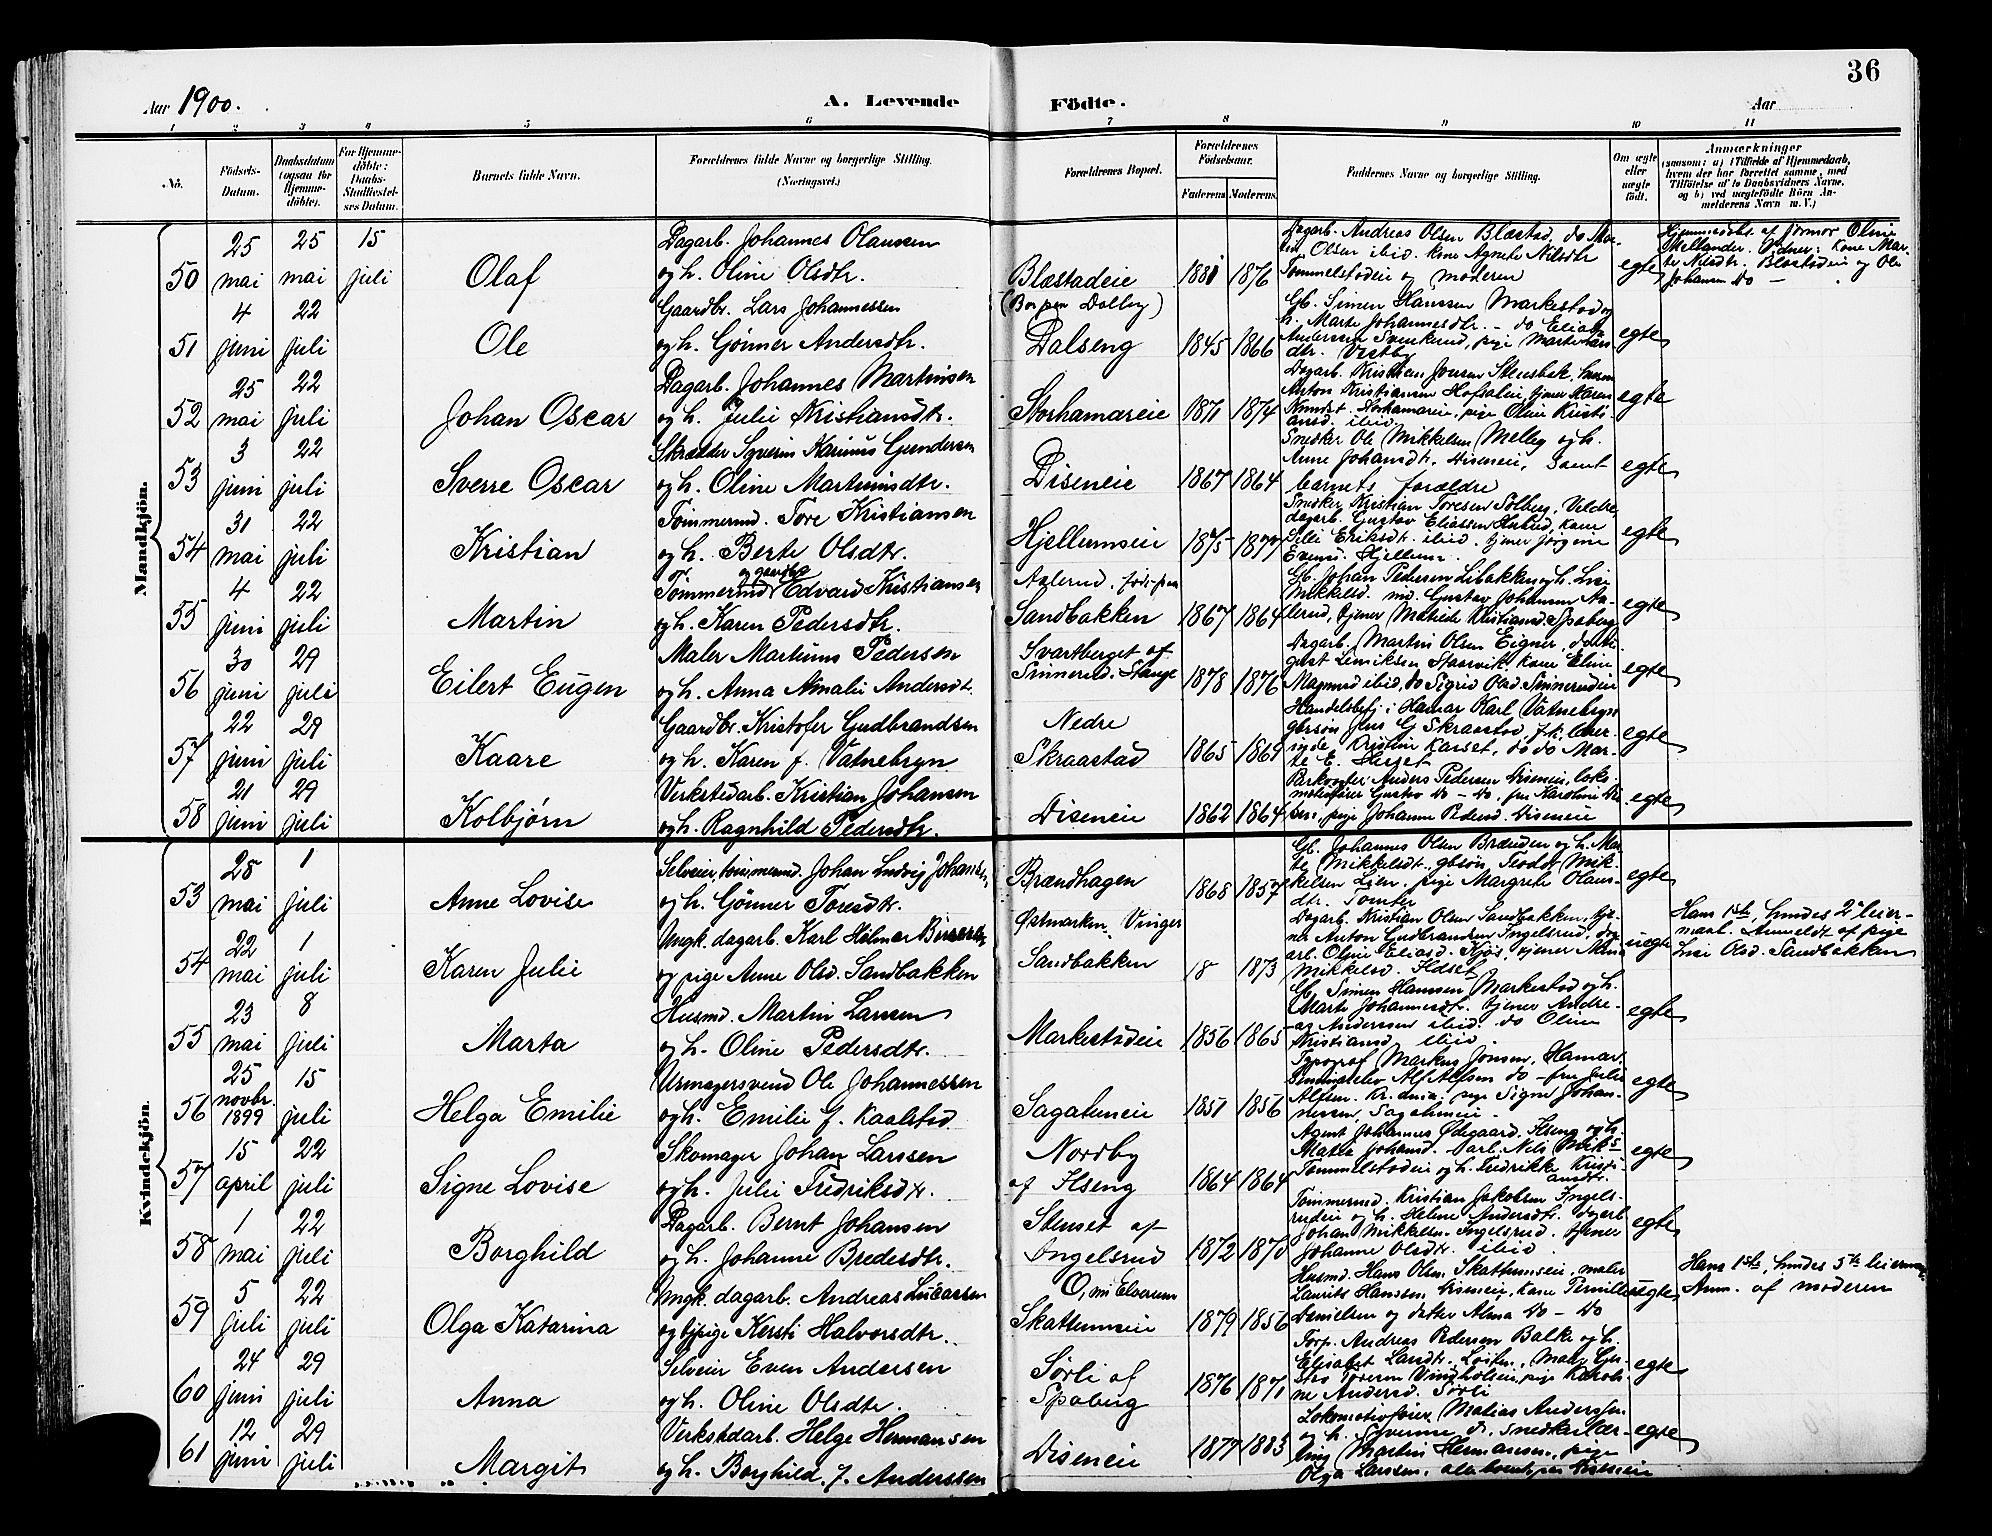 36
Aar 1900.
A. Levende Födte.
Aar
1 2 3 4 5 6 7 8 9 10 11
No.
Födsels-Datum.
Daabsdatum (ogsaa for Hjemme-döbte).
For Hjemme-döbte: Daabs-Stadfæstel-ses Datum.
Barnets fulde Navn.
Forældrenes fulde Navne og borgerlige Stilling. (Næringsvei.)
Forældrenes Bopæl.
Forældrenes Födselsaar.
Faderens Moderens
Faddernes Navne og borgerlige Stilling.
Om ægte eller uægte födt.
Anmærkninger
(saasom: a) i Tilfælde af Hjemmedaab,
hvem der har forrettet samme, med
Tilföielse af to Daabsvidners Navne,
og b) ved uægtefödte Börn An-
melderens Navn m. V.)
Mandkjön.
50 25 mai 25 mai 15 juli Olaf
Dagarb. Johannes Olaussen
og h. Oline Olsdtr.
Blæstadeie 1881 1876
Dagarb. Andreas Olsen Blæstad, do Mar-
tin Olsen ibid. kone Agnete Nilsdtr
Tommelstadeie og moderen
egte
Hjemmedøbt af Jormor Oline
Mellander. Vidner: kone Mar-
te Nilsdtr. Blæstadeie og Ole
Johansen do
51 4 juni 22 juli Ole
Gaardbr. Lars Johannessen
og h. Gønner Andersdtr.
(Bor paa Dalby)
Dalseng 1845 1866
Gb. Simen Hanssen Markestad og
h. Marte Johannesdtr. - do Elias
Anderssen Svenkerud, pige Marte
dtr. Vestby
egte
52 25 mai 22 juli Johan Oscar
Dagarb. Johannes Martinsen
og h. Julie Kristiansdtr.
Storhamareie 1871 1874
Dagarb. Kristian Jonsen Stensbek,
Anton Kristiansen Hofsaleie, tjener Karen
Knudst. Storhamareie, pige Oline Kristi-
ansd. ibid.
egte
53 3 juni 22 juli Sverre Oscar
Skrædder Syverin Karinus Gundersen
og h. Oline Martinsdtr.
Diseneie 1867 1864
Snedker Ole Mikkelsen Melby og h.
Anne Johansdtr. Diseneie, samt
barnets forældre
egte
54 31 mai 22 juli Kristian
Tømmermd. Tore Kristiansen
og h. Berte Olsdtr.
Hjellumseie 1875 1877
Snedker Kristian Toresen Solberg, Veldre
dagarb. Gustav Eliassen Huhud, kone
Eli Eriksdtr. ibid. tjener Jørgine
Evensd. Hjellum.
egte
55 4 juni 22 juli Martin
og gaardbr.
Tømmermd. Edvard Kristiansen
og h. Karen Pedersdtr.
Aslerud, føde paa
Sandbakken 1867 1864
Gb. Johan Pedersen Libakken og h. Lise
Mikkelsd. md. Gustav Johansen As-
lerud, tjener Matilde Kristiansd. Spaberg
egte
56 30 juni 29 juli Eilert Eugen
Maler Martinus Pedersen
og h. Anna Amalie Andersdt.
Svartberget af
Sinnerud. Stange 1878 1876
Dagarb. Martin Olsen Eigner, do
gust Lineksen Staarvik, kone Eline
Magnusd ibid, do Sigrid Olsd. Sinnerudeie
egte
57 22 juni 29 juli Kaare
Gaardbr. Kristofer Gudbrandsen
og h. Karen f. Vatnebryn
Nedre
Skraastad 1865 1869
Handelsbetj. i Hamar Karl Vatnebryn
gbrsøn Jens G Skraastad, frk. lærer-
inde Kristine Karset, do do Mar-
te E. Harset
egte
58 21 juni 29 juli Kolbjørn
Verkstedarb. Kristian Johansen
og h. Ragnhild Pedersdtr.
Diseneie 1862 1864
Parkvogter Anders Pedersen Diseneie, loko-
motivfører Gustav do - do, fru Karoline
pige Johanne Pedersd. Diseneie
egte
Kvindekjön.
53 28 mai 1 juli Anne Lovise
Selveier tømmermd. Johan Ludvig Johansen
og h. Gønner Toresdtr.
Brændhagen 1868 1857
Gb. Johannes Olsen Brænden og h. Mar-
te Mikkelsdt. gbsøn Teodor Mik-
kelsen Lien, pige Margrete Olaus-
dtr. Tomter
egte
54 22 mai 1 juli Karen Julie
Ungk. dagarb. Karl Hilmer
og pige Anne Olsd. Sandbakken
Østmarken, Vinger
Sandbakken 18 1873
Dagarb. Kristian Olsen Sandbakken, tje-
ner Anton Gudbrandsen Ingelsrud, dag-
arb. Oline Eliasd. Kjos, tjener Alma
Mikkelsd. Ilset
uegte
Hans 1ste, hendes 2det leier-
maal. Anmeldt af pige
Lise Olsd. Sandbakken
55 23 mai 8 juli Marta
Husmd. Martin Larssen
og h. Oline Pedersdtr.
Markestadeie 1856 1865
Gb. Simen Hanssen Markestad og h.
Marte Johannesdtr. tjener Andre-
as Anderssen ibid. do Oline
Kristiansd ibid
egte
56 25 novbr. 1899 15 juli Helga Emilie
Urmagersvend Ole Johannessen
og h. Emilie f. Kaalstad
Sagatuneie 1851 1856
Typograf Markus Jonsen, Hamar
Seminarelev Alf Alfsen do - fru Julie
Alfsen. Kr.ania, pige Signe Johan-
nessen, Sagatuneie.
egte
57 15 april 22 juli Signe Lovise
Skomager Johan Larssen
og h. Julie Fredriksdtr.
Nordby
af Ilseng 1864 1864
Agent Johannes Ødegaard, Ilseng og h.
Matea Johansd. Parl. Nils Miks.
Tommelstadeie og h. Fredrikke Kristi-
ansdtr.
egte
58 1 mai 22 juli Borghild
Dagarb. Bernt Johansen
og h. Johanne Bredesdtr.
Stenset af
Ingelsrud 1872 1870
Tømmermd. Kristian Jakobsen Ingels-
rudeie og h. Helene Andersdtr. dagarb
Johan Mikkelsen Ingelsrud. tjener
Johanne Olsdtr. ibid.
egte
59 5 juli 22 juli Olga Katarina
Ungk. dagarb. Andreas Lucassen
og pige Kersti Halvorsdtr.
O, mi Elverum
Skattumseie 1879 1856
Husmd. Hans Olsen Skattumseie, maler
Laurits Hanssen Diseneie, kone Pernille
Danielsen og datter Alma do - do
uegte
Hans 1ste, hendes 5te leierm.
Anm. af moderen
60 24 juni 29 juli Anna
Selveier Even Andersen
og h. Oline Olsdtr.
Sørli af
Spaberg 1876 1871
Forp. Andreas Pedersen Balke og h.
Elisabet Larsdtr. Løiten, Maler Gu-
stav Toresen Vindholeie, pige Karoli-
ne Andersd. Sørli
egte
61 12 juni 29 juli Margit
Verkstedarb. Helge Hermansen
og h. Borghild f. Anderssen
Diseneie 1879 1883
Lokomotivfører Matias Anderssen
og h. Syverine d. snedkerlær-
ling Martin Hermansen, pige
Olga Larssen, alle boende paa Diseneie
egte